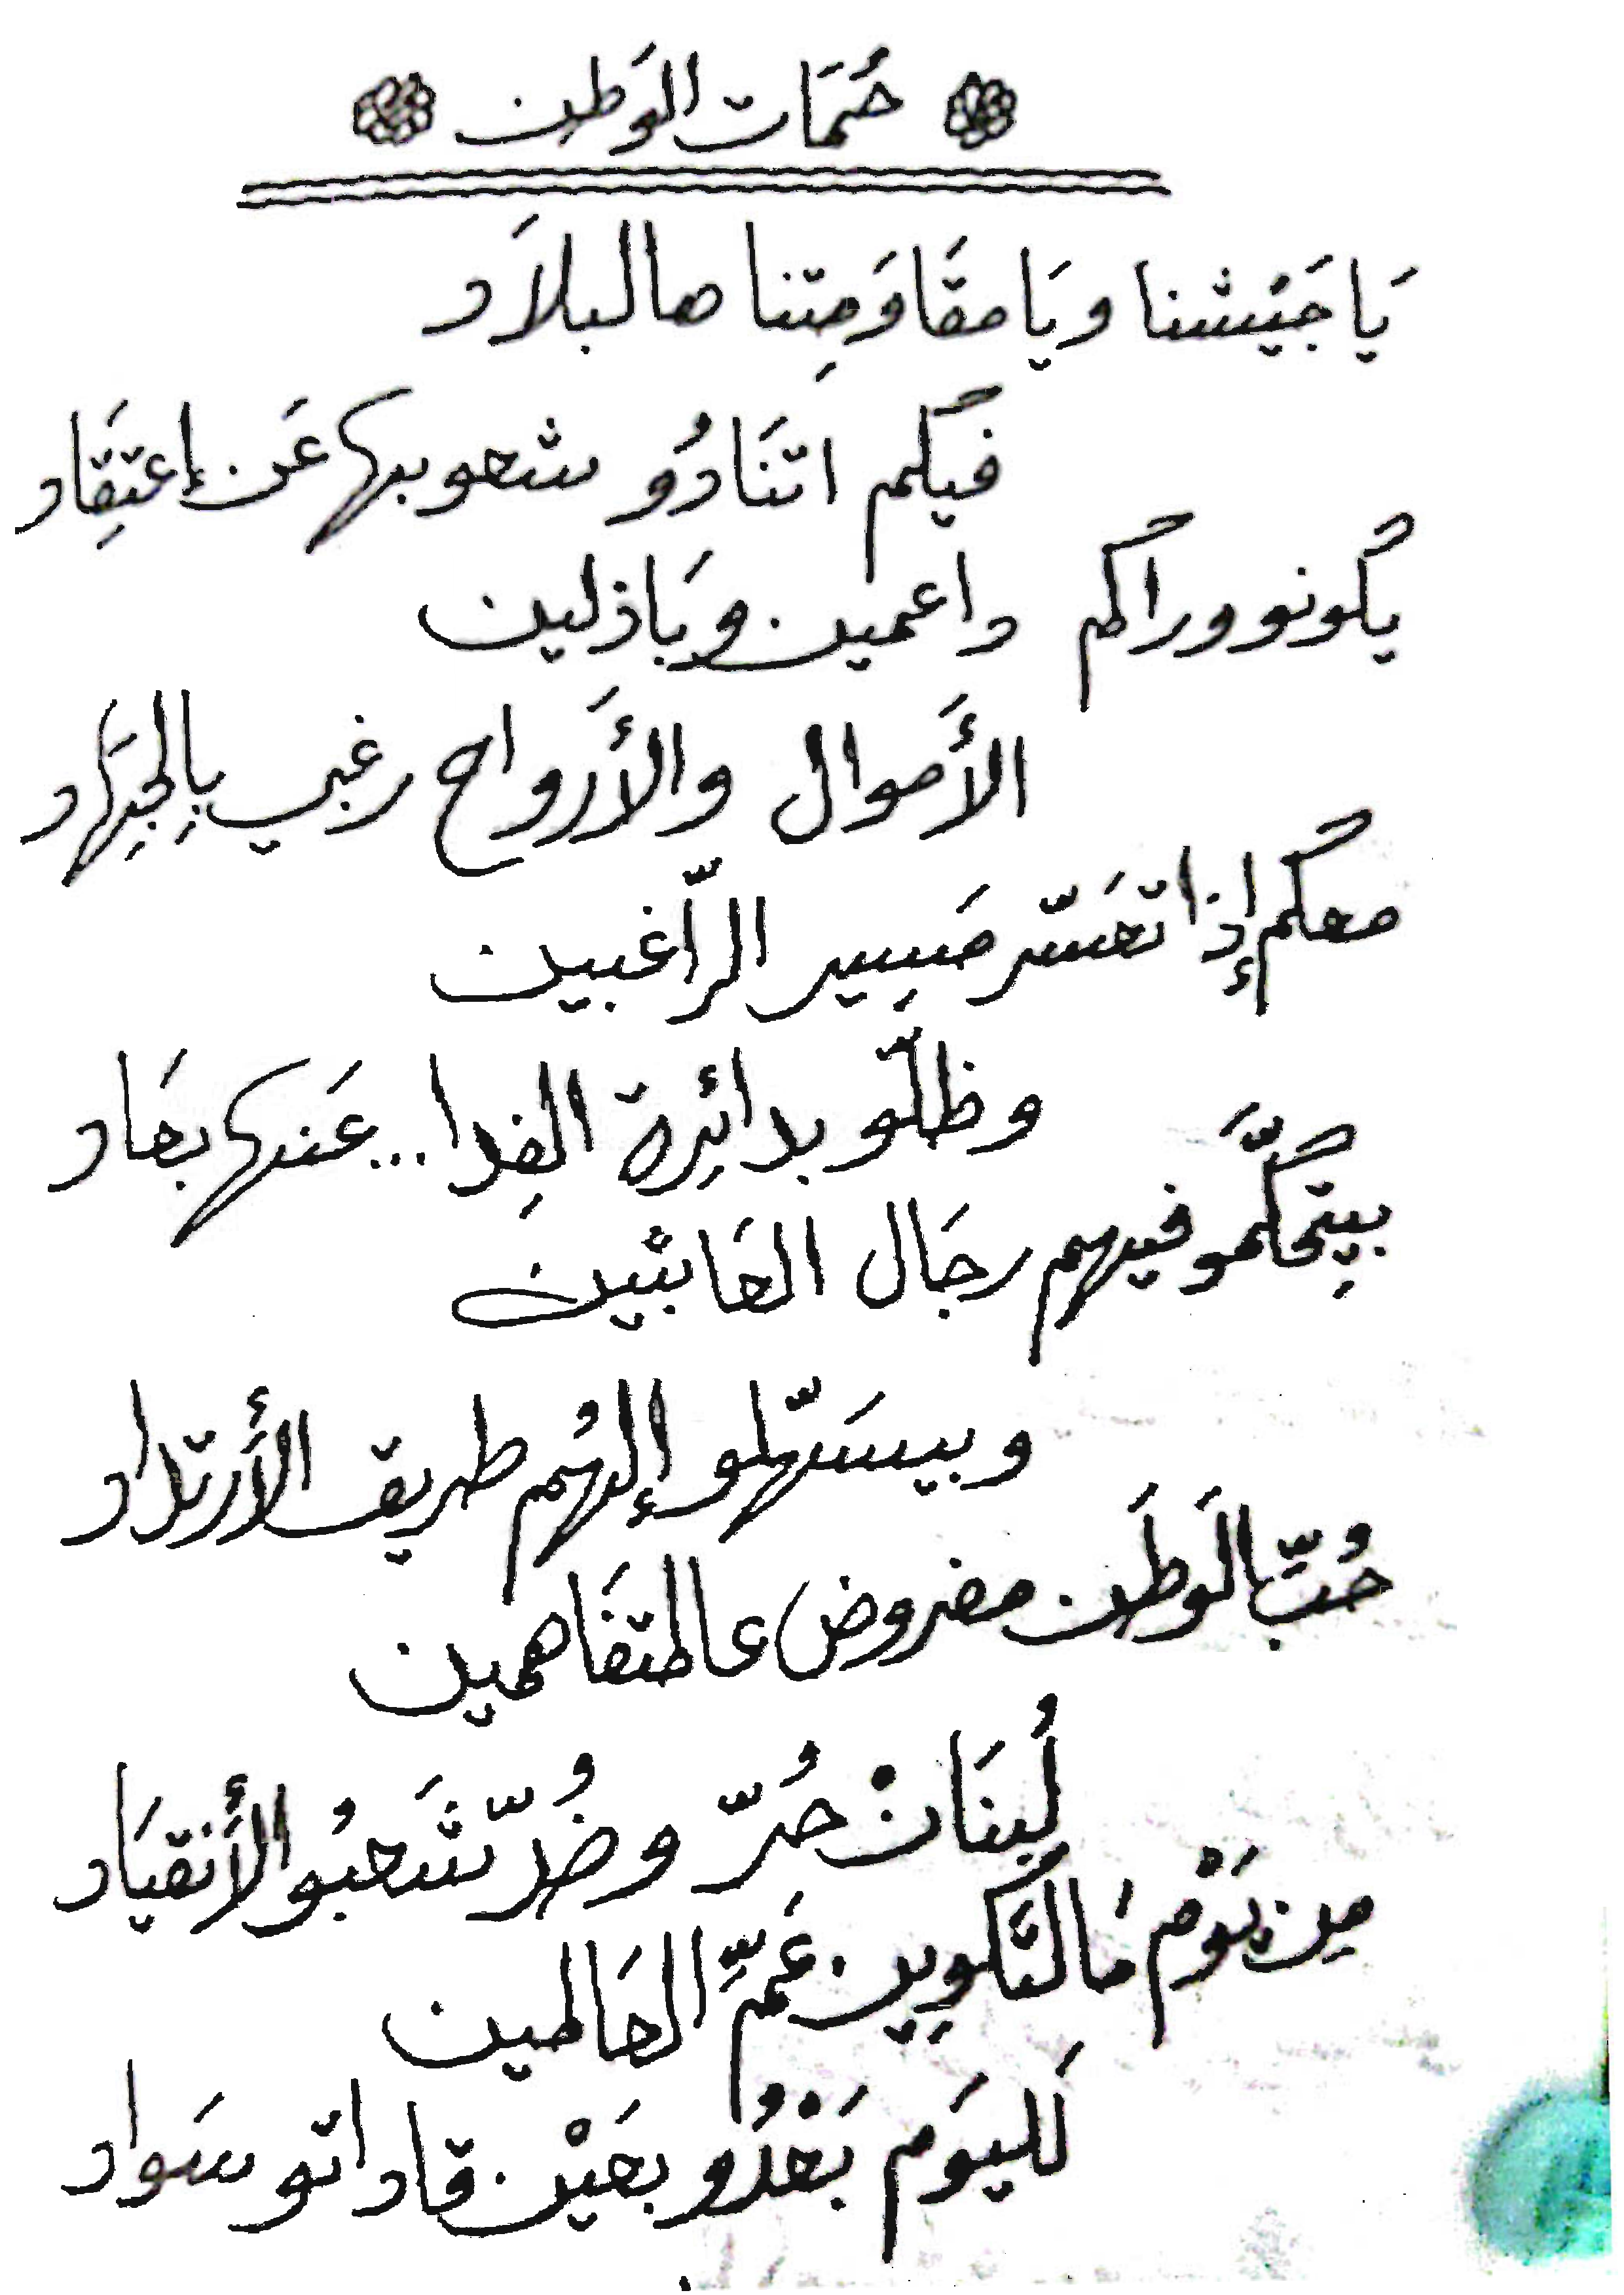 حُمَات الوَطن
يَا جَيْشنا ويَا مقَاوَمِتنا هالبلاَد
فيكم اتنَادُو شعوبها عَن إعتِقَاد
يكونو وراكم داعمين وبَاذلين
الأَموال والأَرواح رغبي بِالجِهَاد
معكم إذا تعَسّر مَسِير الرّاغبين
وظلّو بدائِرة الفِدا... عَنها بعَاد
بيِتحكَّمو فيهم رجَال العَابثين
وبيسَهّلو إلهُم طريق الأَرتداد
حُبّ الوَطَن مفروض عالمتفَاهمين
لُبنَانْ حُرّ وضُدّ شَعبُو الأَنقيَاد
مِن يَوْم مَا التَكوِين عَمِّ العَالمين
لَليَوم بَعْدُو بعَيْن قاداتو سَواد